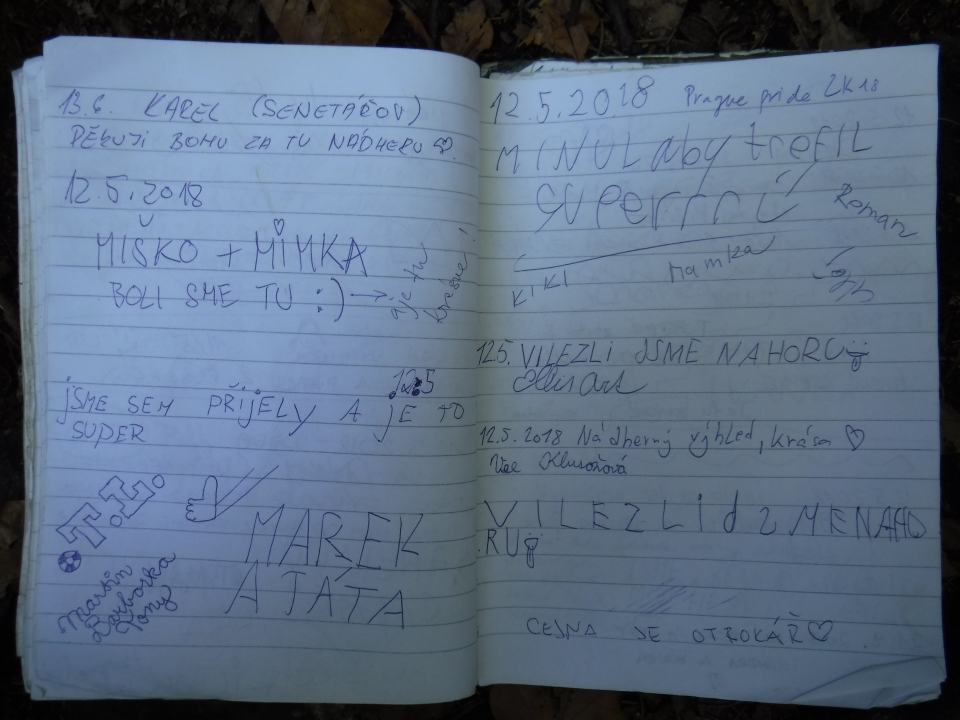 13.6. KAREL (SENETÁŘOV)
DĚKUJI BOHU ZA TU NÁDHERU
12.5.2018
MIŠKO + MIMKA
BOLI SME TU :) → je tu
krásne!
12.5
jSME SEM PŘIjELY A jE TO
SUPER
MAREK
A TÁTA
Martin
Barborka
Tony
12.5.2018 Prague pride ZK18
MINUL aby trefil
SUPERrrr
Roman
KIKI mamka
12.5. VILEZLI JSME NAHORU
12.5.2018 Nádherný výhled, krása ♡
VILEZLI dSMENAHO
RU
CESNA SE OTROKÁŘ ♡